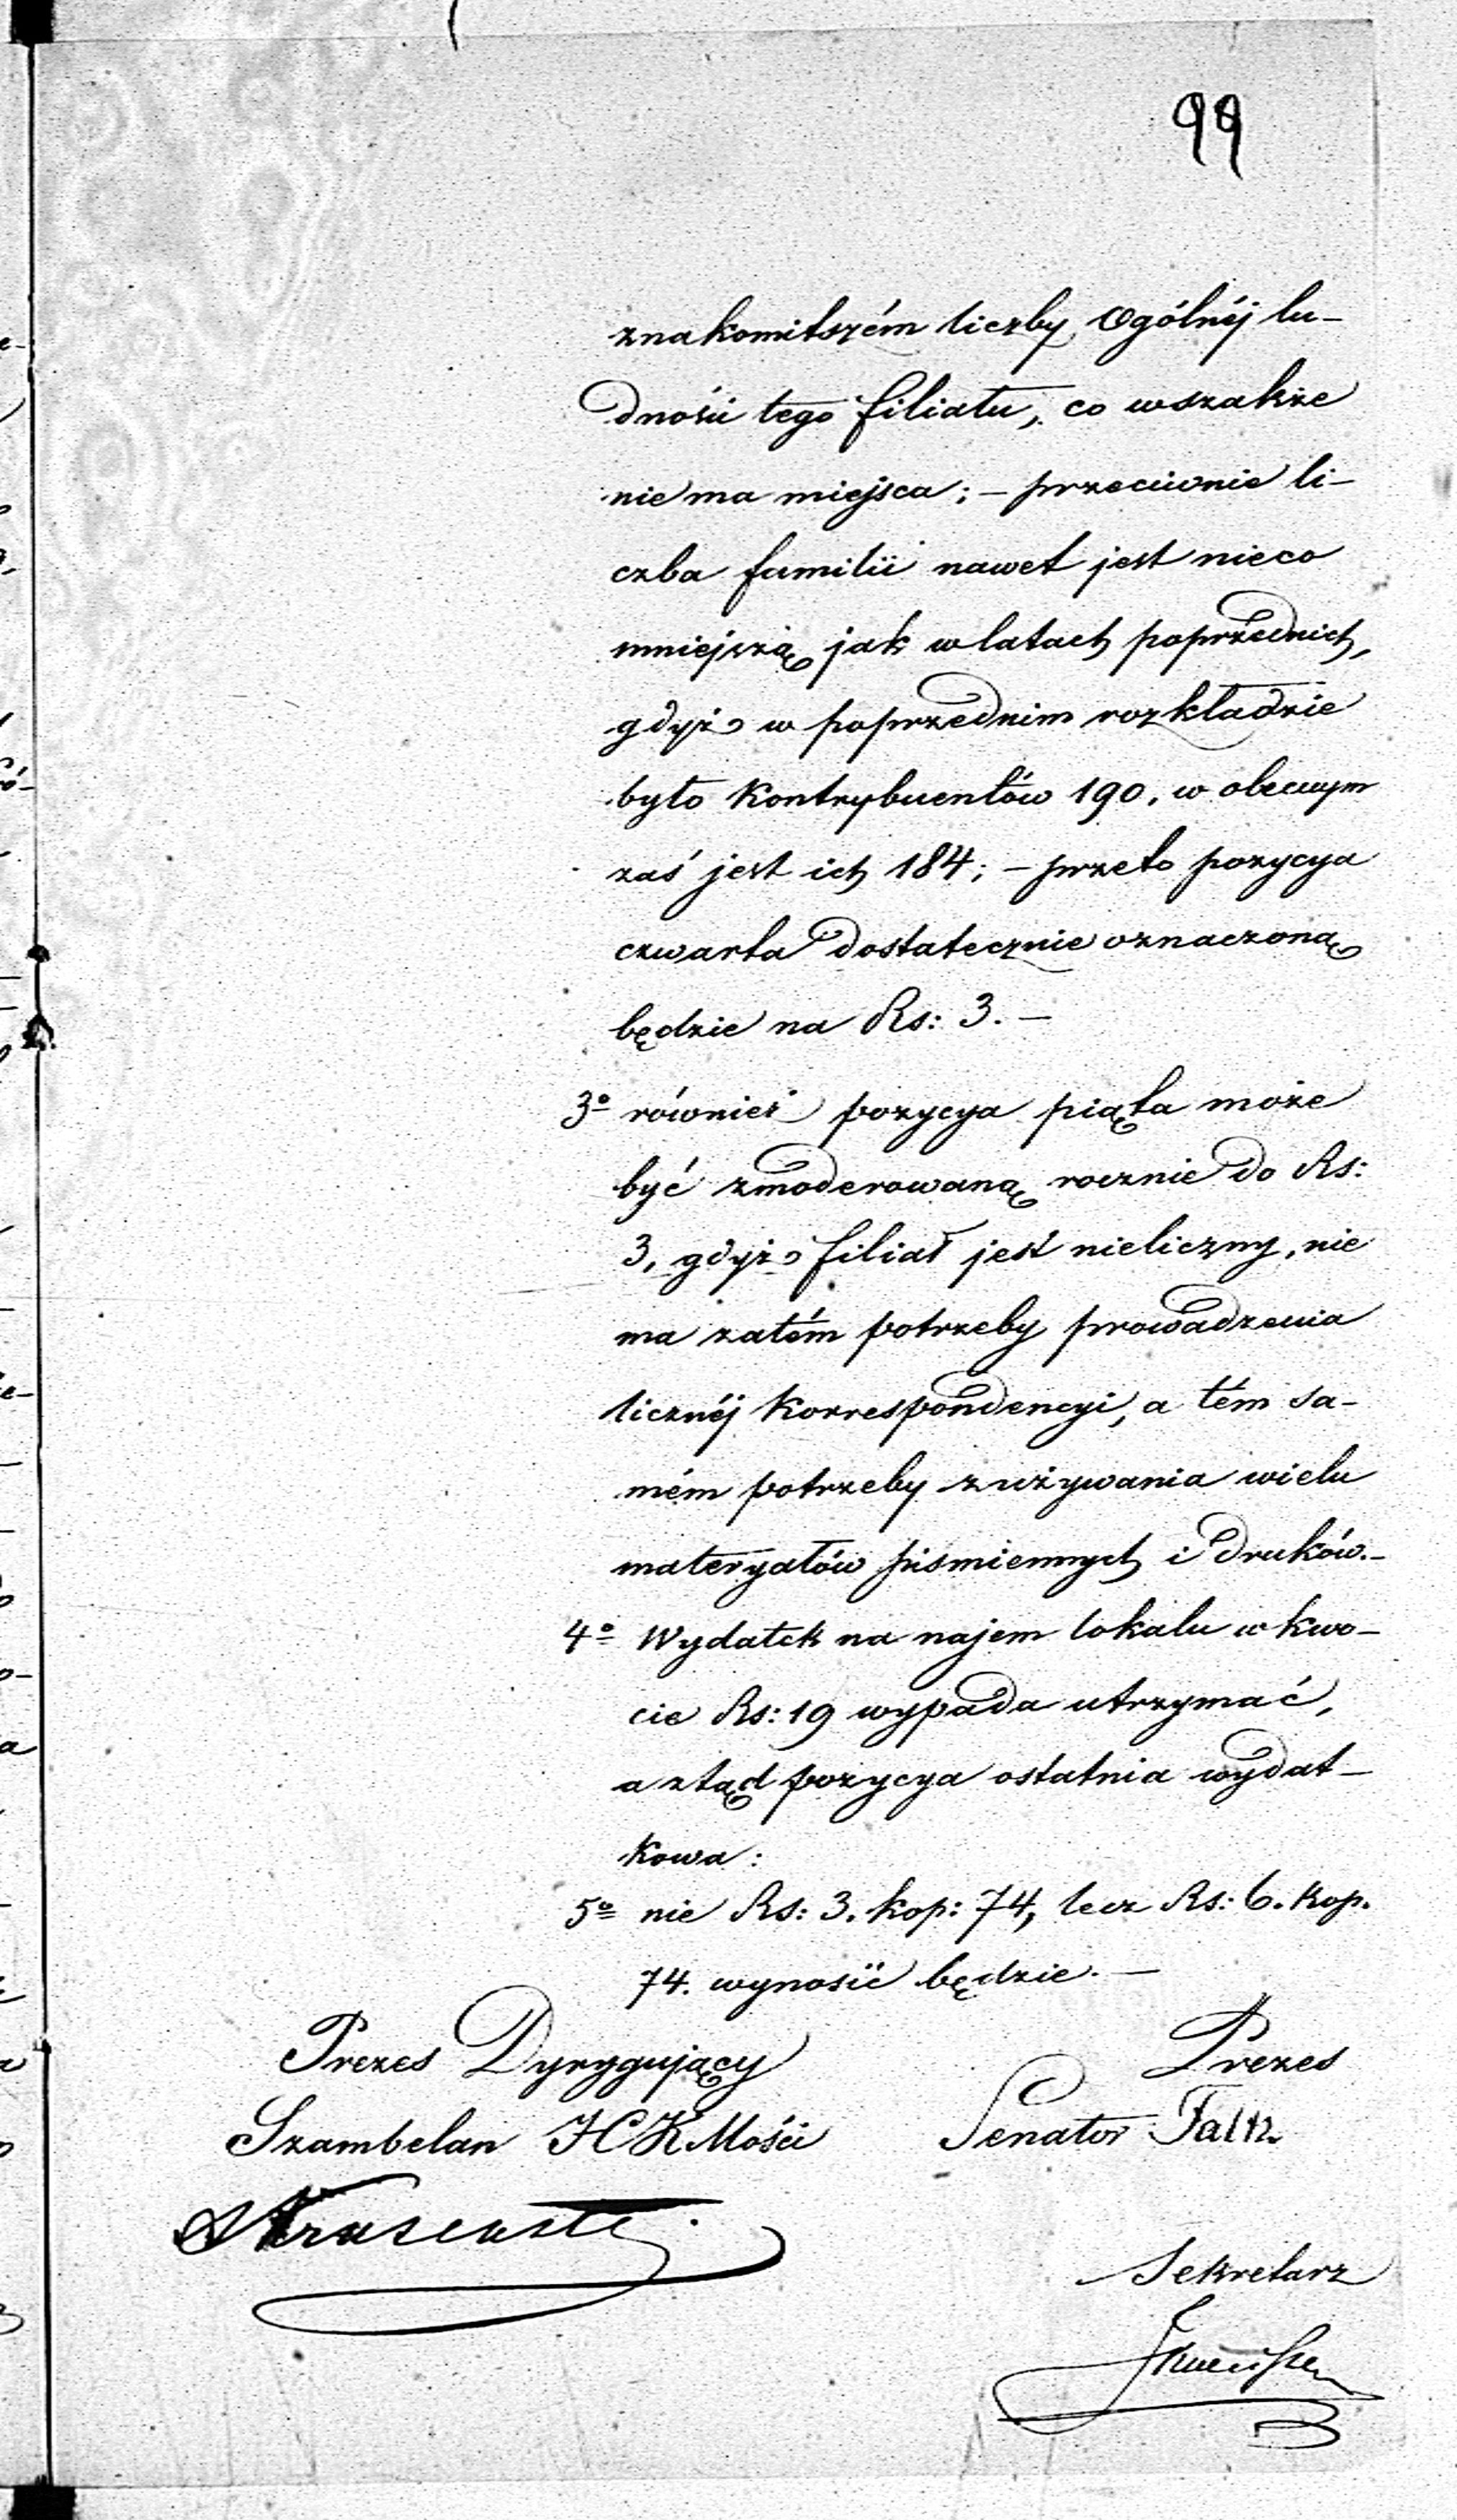 99
znakomitszém liczby Ogólnéj lu-
dności tego filiału, co wszakże
nie ma miejsca; - przeciwnie li-
czba familii nawet jest nieco
mniejszą jak w latach poprzednich,
gdyż w poprzednim rozkładzie
było Kontrybuentów 190, w obecnym
zaś jest ich 184; - przeto pozycya
czwarta dostatecznie oznaczoną
będzie na Rs: 3. -
3o również pozycya piąta może
być zmoderowaną rocznie do Rs:
3, gdyż filiał jest nieliczny, nie
ma zatém potrzeby prowadzenia
licznéj Korrespondencyi, a tém sa-
mém potrzeby zużywania wielu
materyałów piśmiennych i druków. -
4o Wydatek na najem lokalu w kwo-
cie Rs: 19 wypada utrzymać,
a ztąd pozycya ostatnia wydat-
kowa:
5o nie Rs: 3. kop: 74, lecz Rs: 6. kop.
74. wynosić będzie. -
Prezes Dyrygujący
Prezes
Szambelan JCKMości
Senator Faltz.
Sekretarz